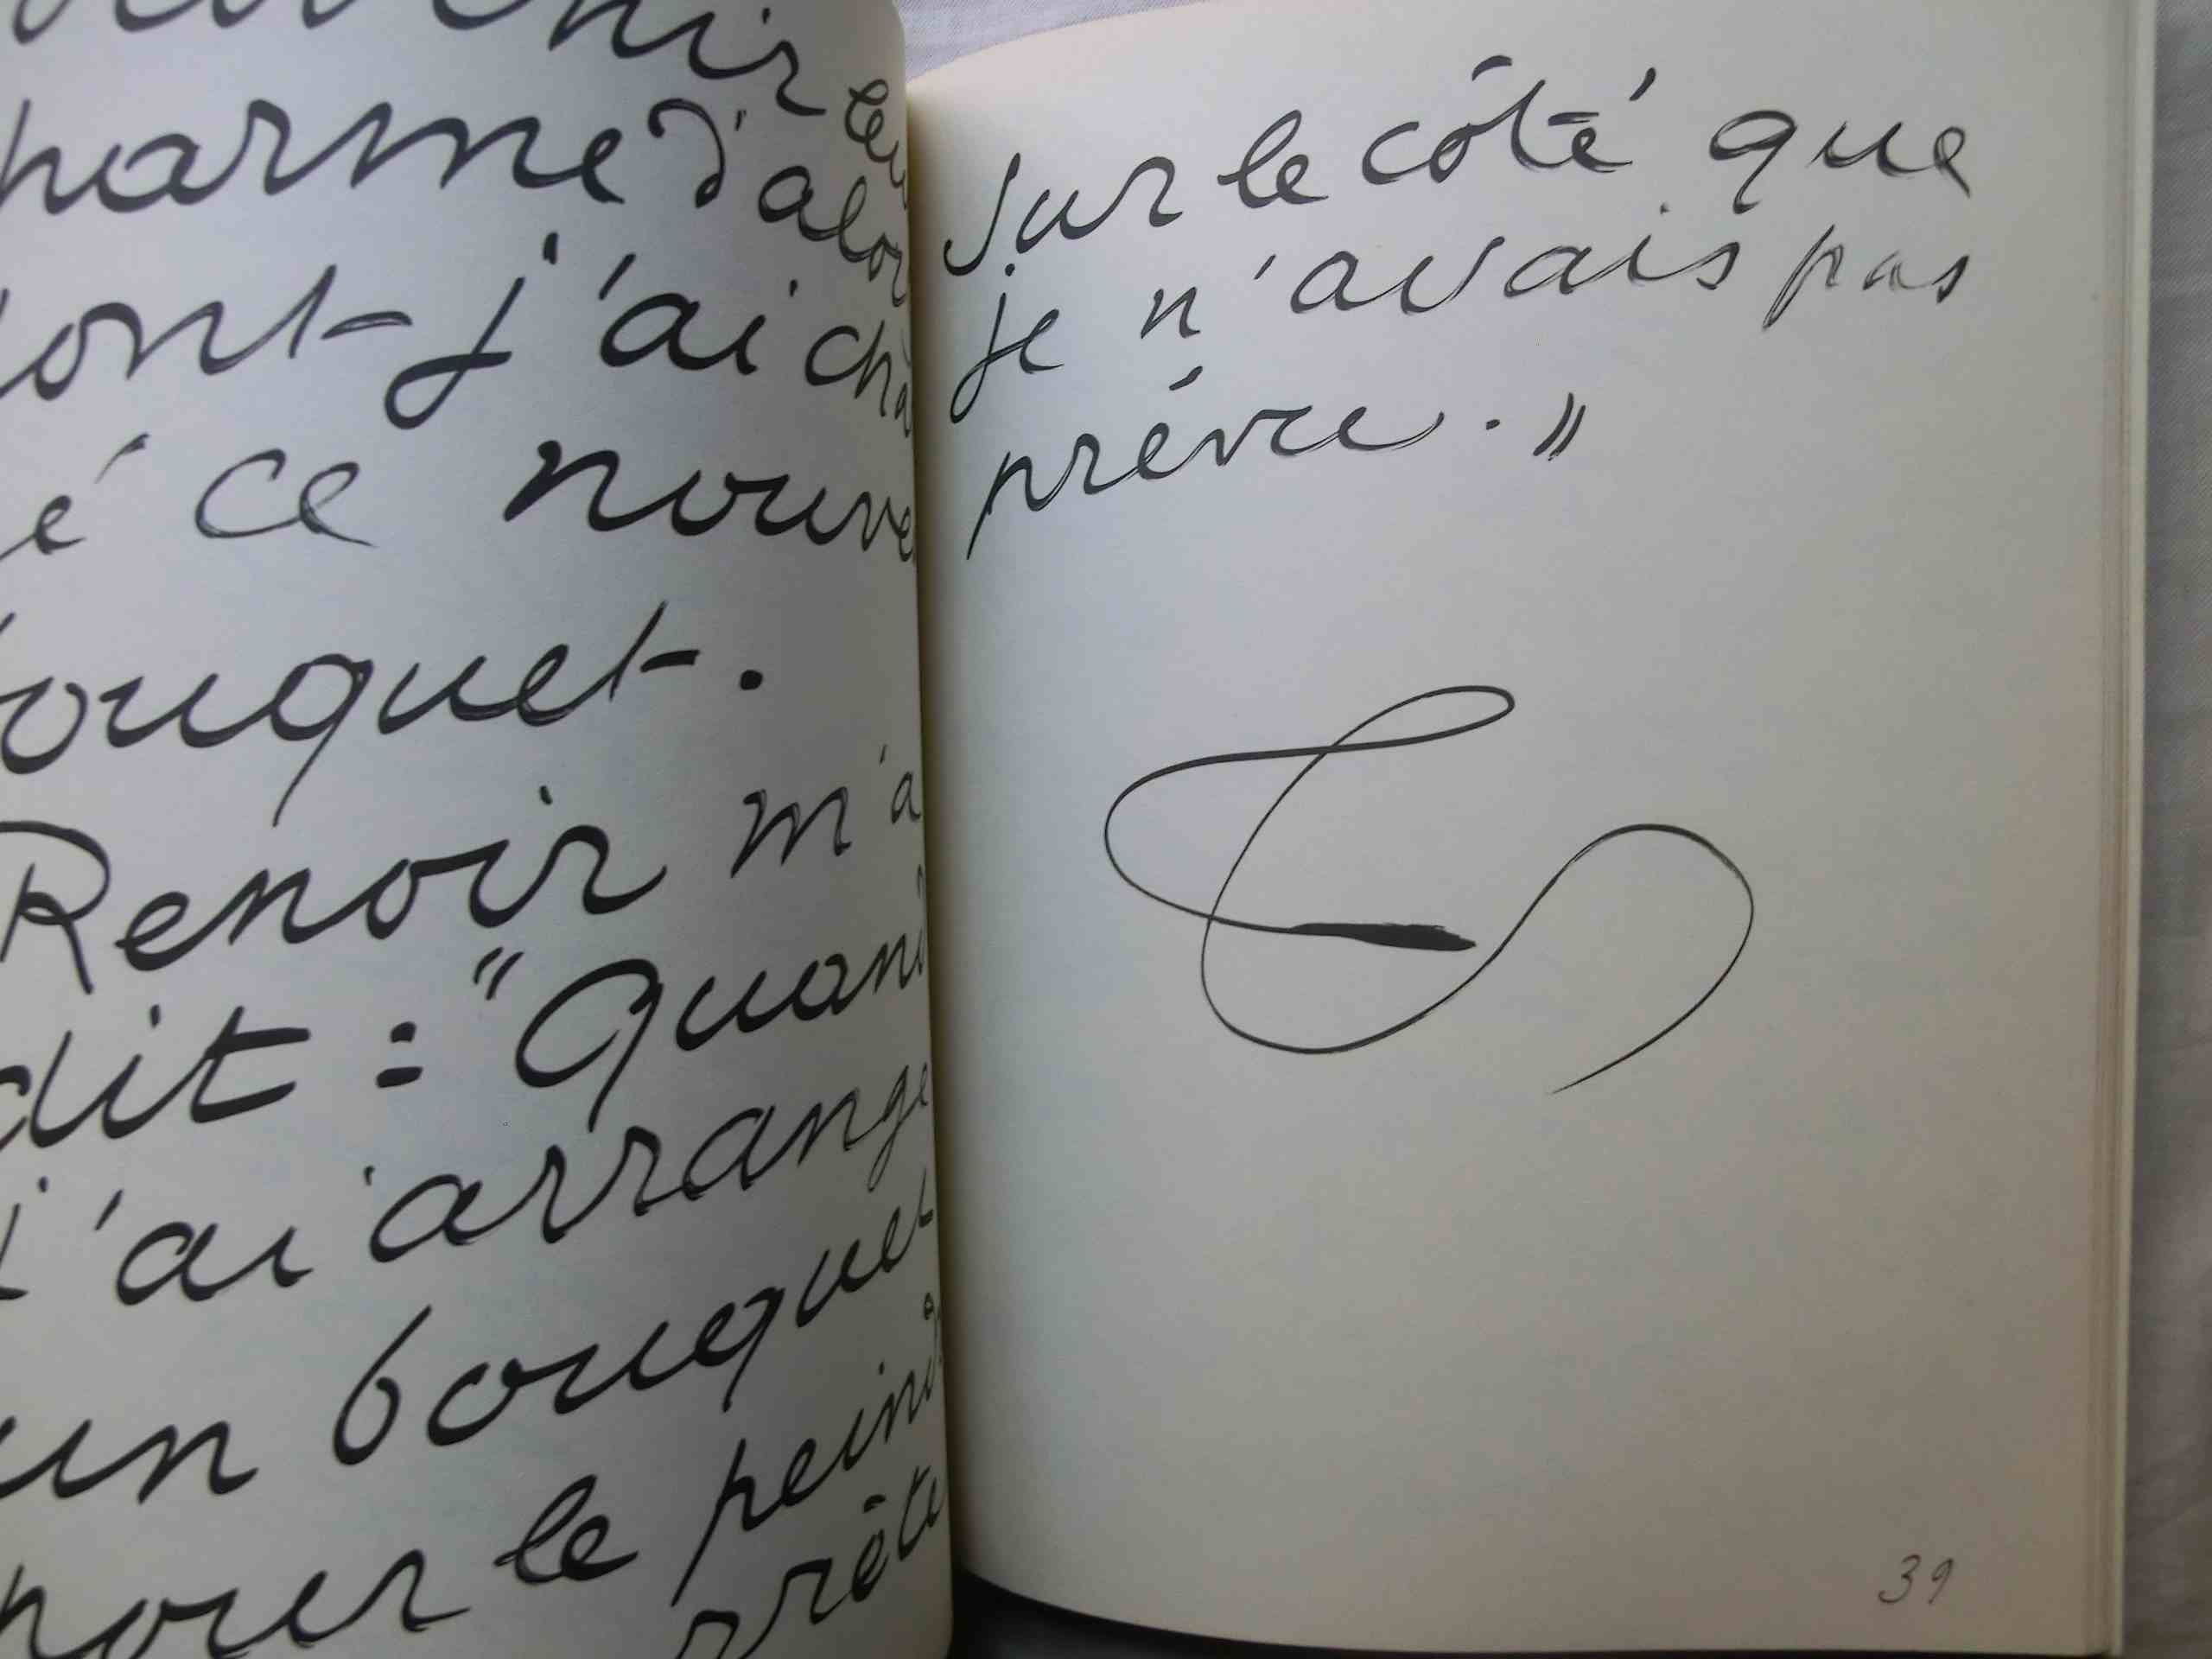 harme d'alor
ont j'ai cha
é ce nouve
ouquet.
Renoir m'a
dit : "Quand
j'ai arrangé
un bouquet
pour le peind
prête
Sur le côté que
je n'avais pas
prévu."
39